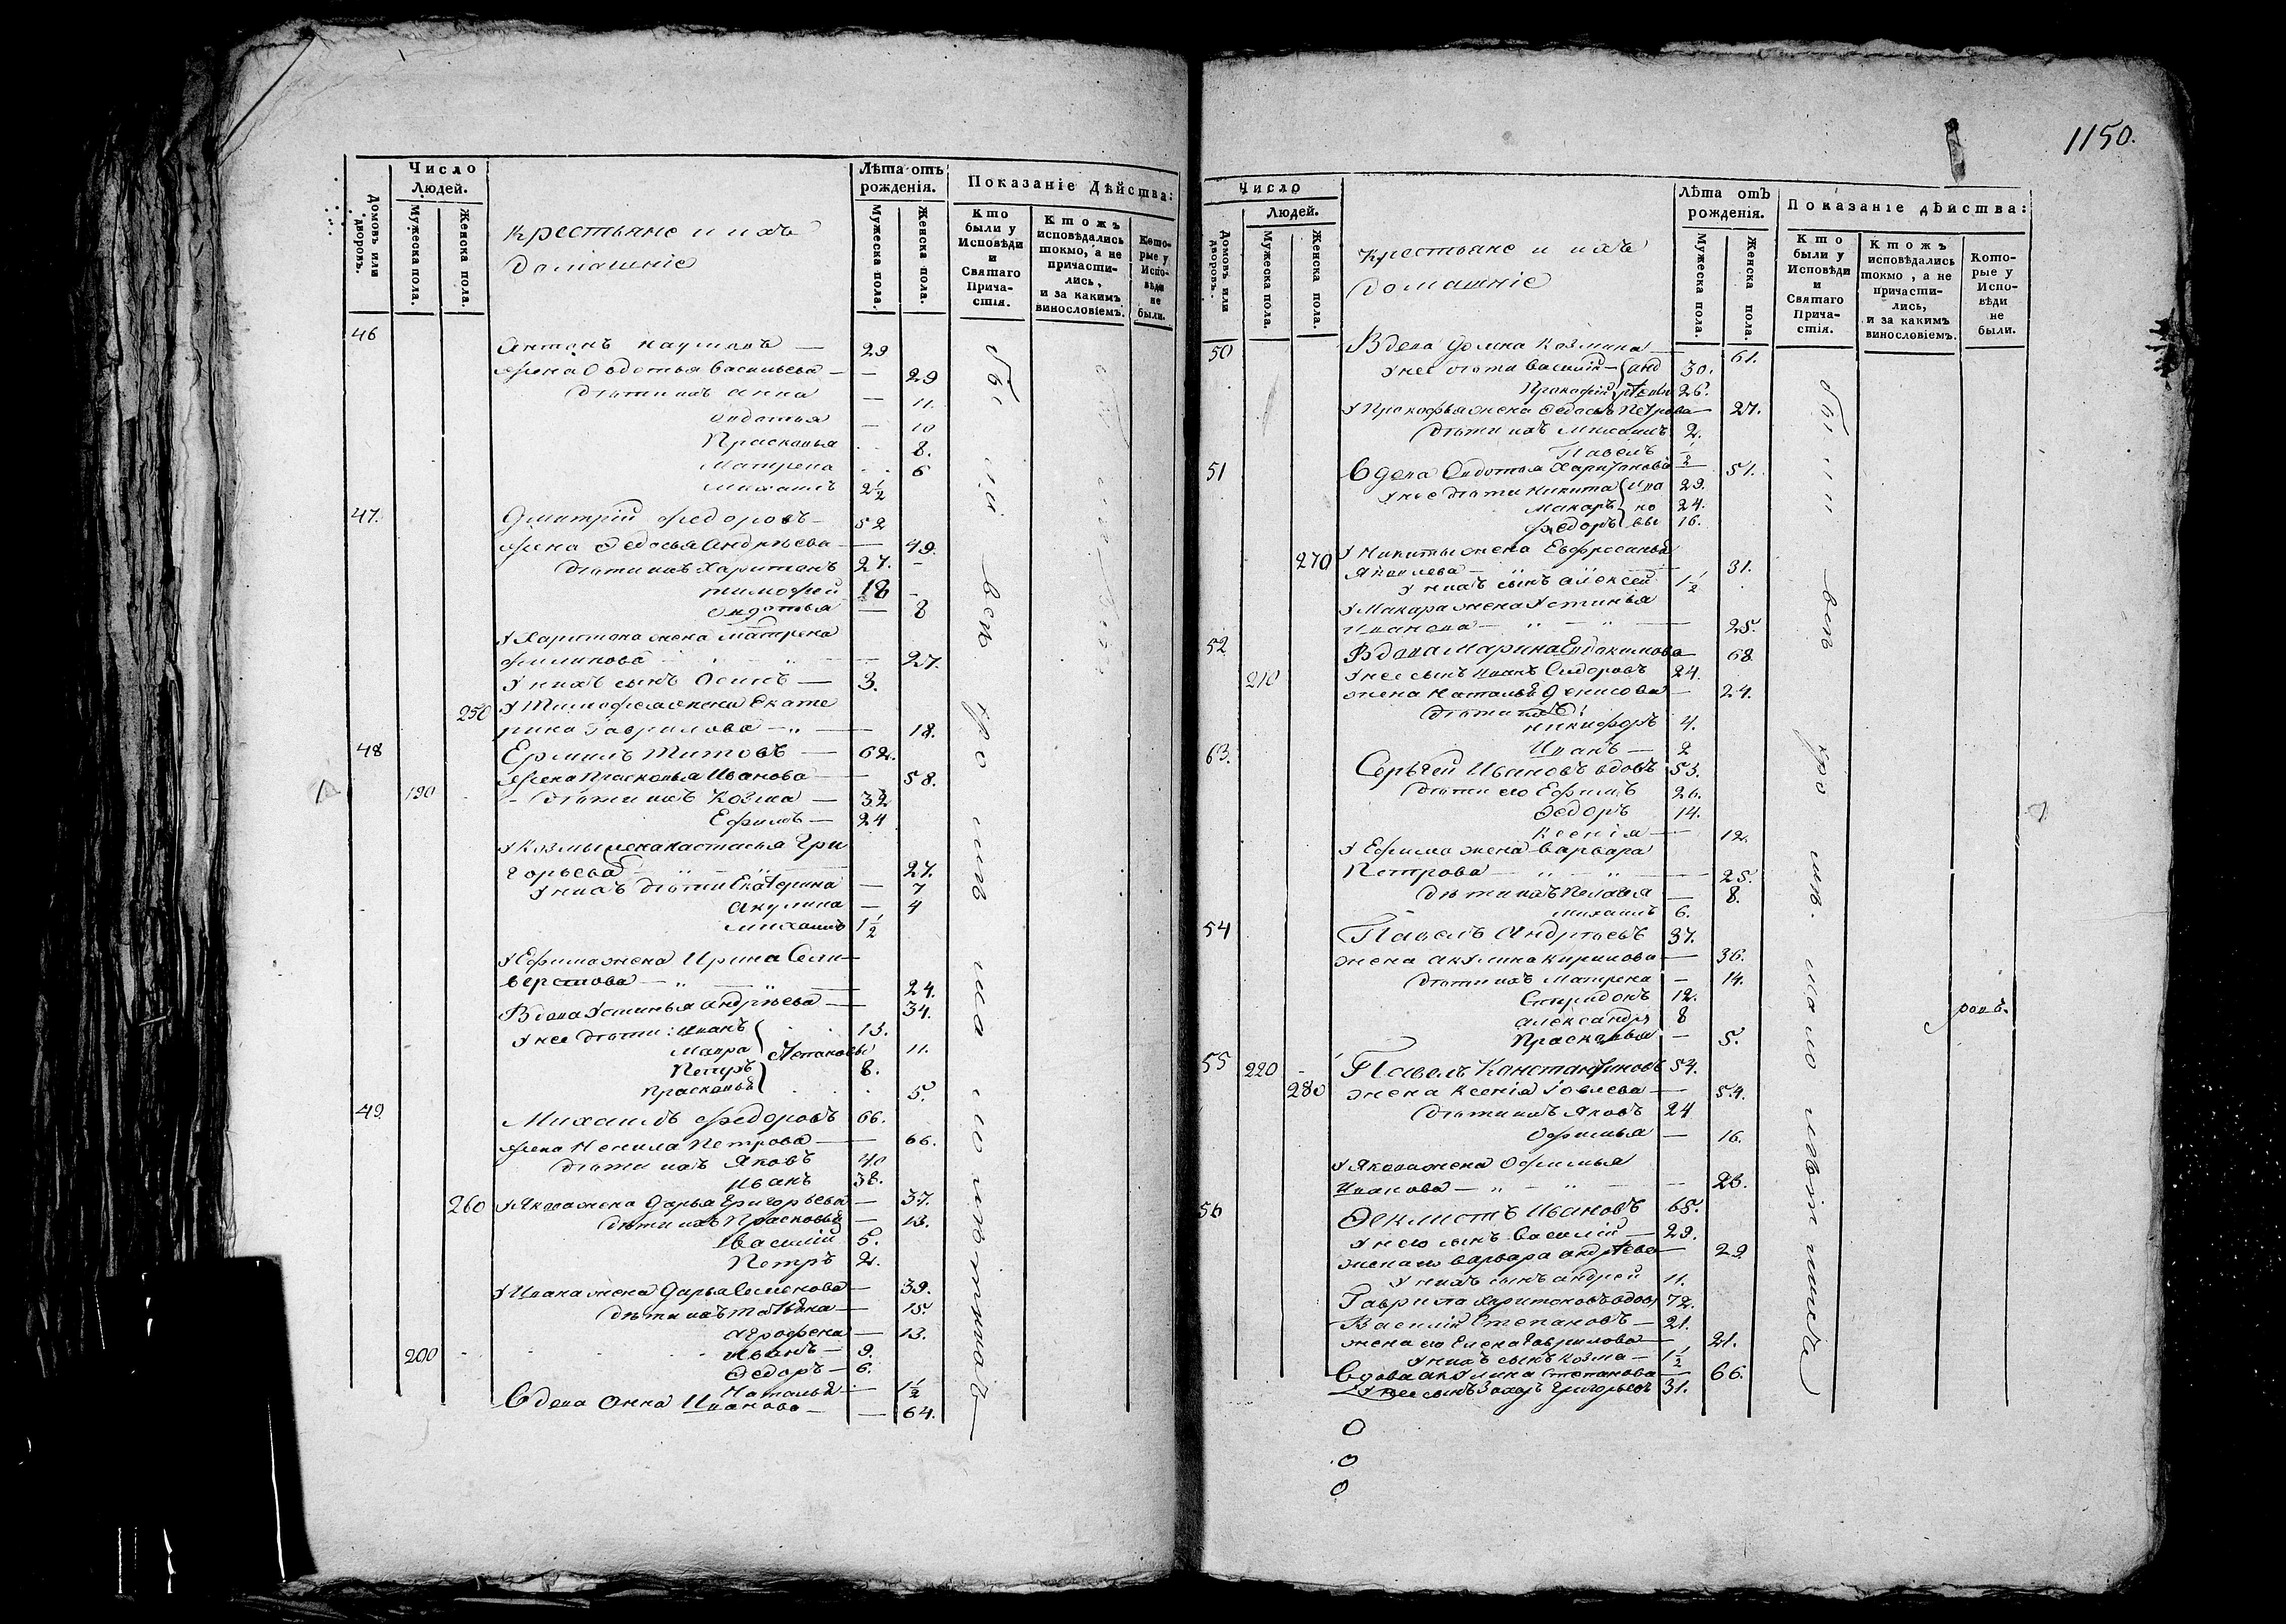 Число Людей.
Домовъ или дворовъ.
Мужеска пола.
Женска пола.
Крестьяне и ихъ
домашніе
Лѣта отъ рожденія.
Мужеска пола.
Женска пола.
Показаніе Дѣйства:
Кто были у Исповѣди и Святаго Прича-стія.
Ктожъ исповѣдались токмо, а не причасти-лись, и за какимъ винословіемъ.
Кото-рые у Испо-вѣди не были.
46 Антонъ Наумовъ — 29
жена Овдотья Васильева — — 29
дѣти ихъ Анна — 11.
Овдотья — 10
Прасковья 8.
Матрена 6
Михаилъ 2 1/2
47. Дмитрій Федоровъ — 52
жена Федосья Андрѣева — 49.
дѣти ихъ Харитонъ 27. —
Тимофей 18 —
Овдотья — 8
У Харитона жена Матрена
Филипова — 27.
У нихъ сынъ Осипъ — 3.
250 У Тимофея жена Екате
рина Гаврилова — 18.
48 Ермилъ Титовъ — 62.
жена Прасковья Иванова — 58.
190 дѣти ихъ Козма — 32
Ефимъ — 24
У Козмы жена Настасья Гри
горьева — 27.
У нихъ дѣти Екатерина — 7
Акулина — 4
Михаилъ 1 1/2
У Ефима жена Ирина Сели-
верстова — 24.
Вдова Устинья Андрѣева — 34.
У нее дѣти: Иванъ 13.
Мавра Астаховы 11.
Петръ 8.
Прасковья 5.
49. Михаилъ Федоровъ 66.
жена Ненила Петрова — 66.
дѣти ихъ Яковъ 40
Иванъ 38.
260 У Якова жена Дарья Григорьева — 37.
дѣти ихъ Прасковья — 13.
Василій 5.
Петръ 2.
У Ивана жена Дарья Семенова — 39.
дѣти ихъ Татьяна — 15
Аграфена — 13.
200 Иванъ — 9.
Федоръ — 6.
Наталья — 1 1/2
Вдова Анна Иванова — — 64.
1150.
Число
Людей.
Домовъ или дворовъ.
Мужеска пола.
Женска пола.
Крестьяне и ихъ
домашніе
Лѣта отъ рожденія.
Мужеска пола.
Женска пола.
Показаніе дѣйства:
Кто были у Исповѣди и Святаго Прича-стія.
Ктожъ исповѣдались токмо, а не причасти-лись, и за какимъ винословіемъ.
Кото-рые у Испо-вѣди не были.
50 Вдова Домна Козмина — 61.
У нее дѣти Василій 30.
Прокофій 26.
У Прокофья жена Федосья Петрова — 27.
дѣти ихъ Михаилъ 2.
Павелъ 1/2
51 Вдова Овдотья Харитонова — 51.
У нее дѣти Никита Ива 29.
Макаръ но 24.
Федоръ вы 16.
270 У Никиты жена Евфросинья
Яковлева — 31.
У нихъ сынъ Алексей 1 1/2
У Макара жена Устинья
Иванова — 25.
52 Вдова Марина Евдокимова — 68
210 У нее сынъ Иванъ Сидоровъ 24.
жена Наталья Денисова — 24.
дѣти ихъ:
Никифоръ 4.
Иванъ — 2
63. Сергѣй Ивановъ вдовъ 53.
дѣти его Ефимъ 26.
Федоръ 14.
Ксенія — 12.
У Ефима жена Варвара
Петрова — 25.
дѣти ихъ Пелагія — 8.
Михаилъ 6.
54 Павелъ Андрѣевъ 37.
жена Акулина Кирилова — 36.
дѣти ихъ Матрена — 14.
Спиридонъ 12.
Александръ 8
Прасковья — 5.
55 220 Павелъ Константиновъ 54.
280 жена Ксенія Іовлева — 54.
дѣти ихъ Яковъ 24
Офимья — 16.
У Якова жена Офимья
Иванова — 26.
56 Феклистъ Ивановъ 65.
У него сынъ Василій — 29.
жена его Варвара Андрѣева — 29
У нихъ сынъ Андрей 11.
Гаврила Харитоновъ вдовъ 72.
Василій Степановъ — 21.
жена его Елена Гаврилова — 21.
У нихъ сынъ Козма — 1 1/2
Вдова Акулина Степанова — 66.
У нее сынъ Захаръ Григорьевъ 31.
были всѣ кро мѣ